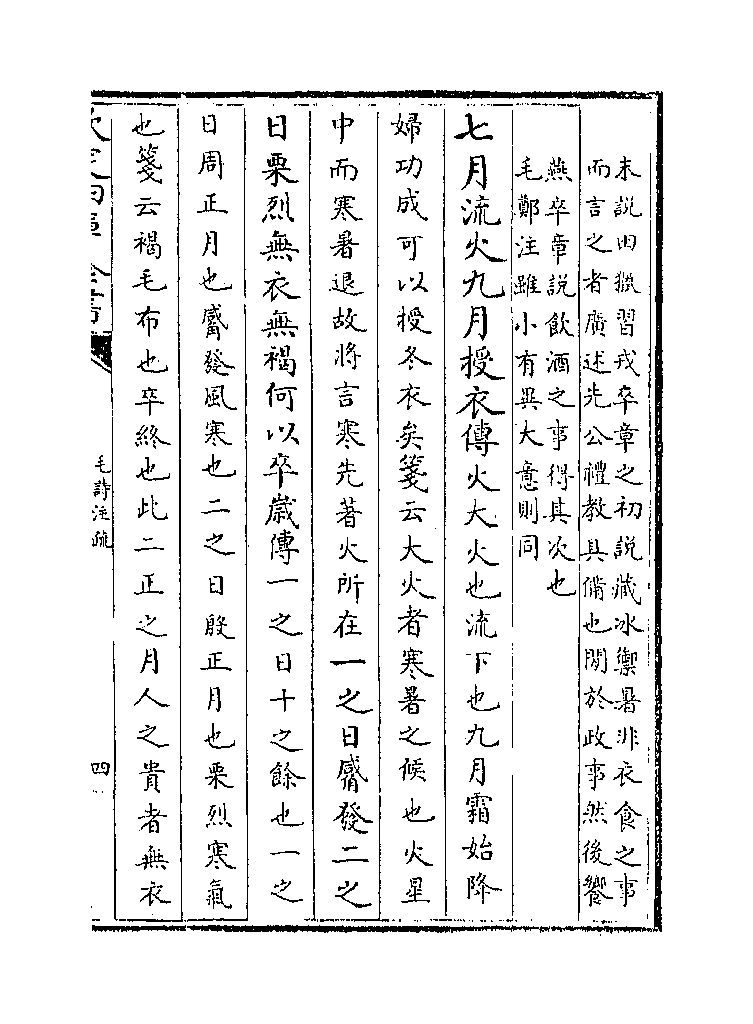 末說田獵習戎卒章之初說藏冰禦暑非衣食之事
而言之者廣述先公禮教具備也閒於政事然後饗
燕卒章說飲酒之事得其次也
毛鄭注雖小有異大意則同
七月流火九月授衣傳火大火也流下也九月霜始降
婦功成可以授冬衣矣箋云大火者寒暑之候也火星
中而寒暑退故將言寒先著火所在一之日觱發二之
日栗烈無衣無褐何以卒歲傳一之日十之餘也一之
日周正月也觱發風寒也二之日殷正月也栗烈寒氣
也箋云褐毛布也卒終也此二正之月人之貴者無衣
毛詩注疏
四